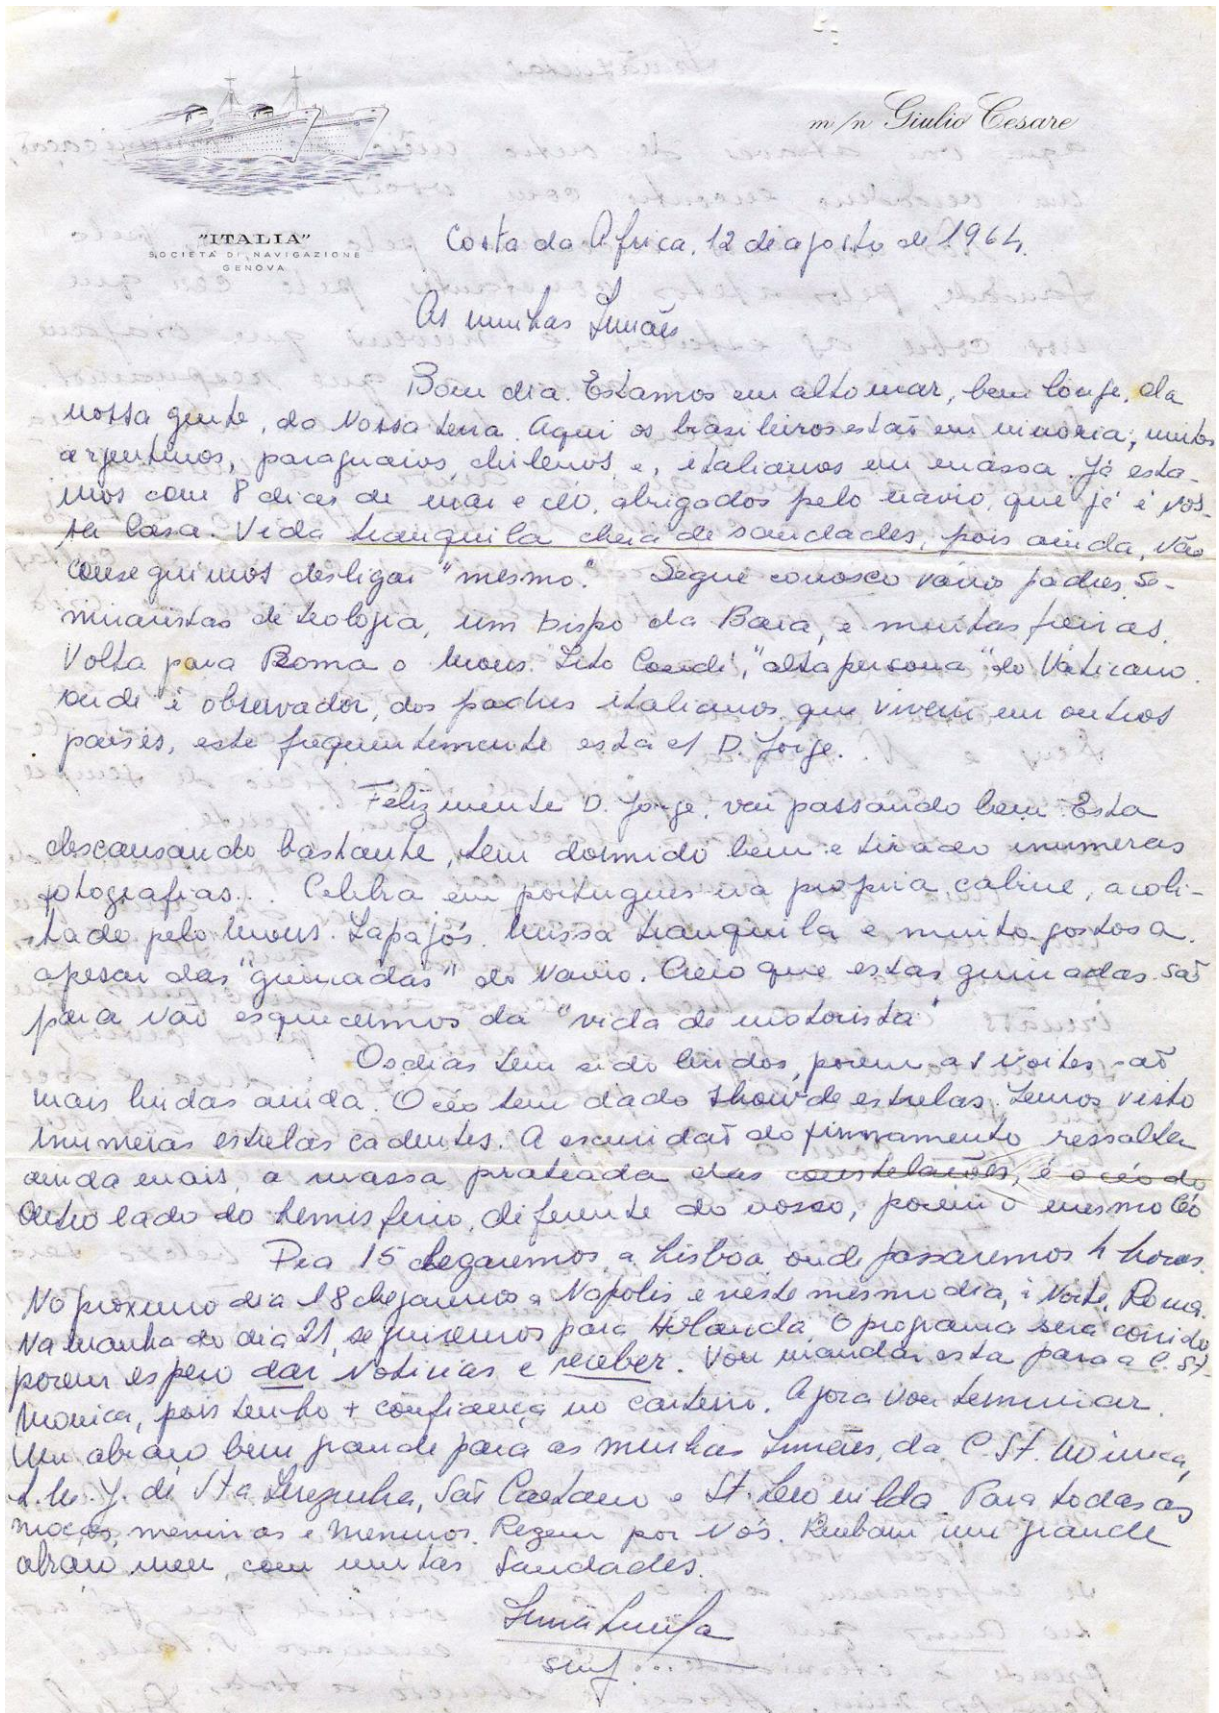 m/n Giulio Cesare
"ITALIA"
SOCIETÀ DI NAVIGAZIONE
GENOVA
Costa da Africa, 12 de agosto de 1964.
As minhas Irmães
Bom dia. Estamos em alto mar, bem longe, da
nossa gente, da Nossa terra. Aqui os brasileiros estão em minoria, muitos
argentinos, paraguaios, chilenos, e, italianos em massa. Já esta-
mos com 8 dias de mar e céo, abrigados pelo navio, que já é nos-
sa Casa. Vida tranquila cheia de saudades, pois ainda, não
conseguimos desligar "mesmo." Segue conosco vário padres, se-
minaristas de teologia, um bispo da Baia, e muitas freiras.
Volta para Roma o Mons. "alta persona" do Vaticano
onde é observador, dos padres italianos que vivem em outros
paises, este frequentemente está c/ D. Jorge.
Felizmente D. Jorge, vai passando bem. Esta
descansando bastante, tem dormido bem e tirado inumeras
fotografias... Celebra em portugues na propria cabine, acoli-
tado pelo Mons. Tapajós. Missa tranquila e muito gostosa.
apesar das "guinadas" do Navio. Creio que estas guinadas são
para não esquecermos da "vida de motorista"
Os dias tem sido lindos, porem as Noites são
mais lindas ainda. O céo tem dado show de estrelas. Temos visto
inumeras estrelas cadentes. A escuridão do firmamento ressalta
ainda mais, a massa prateada das constelações, é o céo do
Outro lado do hemisferio, diferente do nosso, porem o mesmo Céo
Dia 15 chegaremos a Lisboa onde passaremos 4 horas.
No proximo dia 18 chegaremos a Napolis e neste mesmo dia, à Noite, Roma.
Na manha do dia 21, seguiremos para Holanda. O programa será corrido
porem espero dar Noticias e receber. Vou mandar esta para a C. St.
Monica, pois tenho + confiança no carteiro. Agora vou terminar.
Um abraço bem grande para as minhas Irmães, da C. St. Monica,
de Sta Terezinha, São Caetano e St. Leonilda. Para todas as
moças, meninas e meninos. Rezem por Nós. Recebam um grande
abraço meu, com muitas Saudades.
Irmã